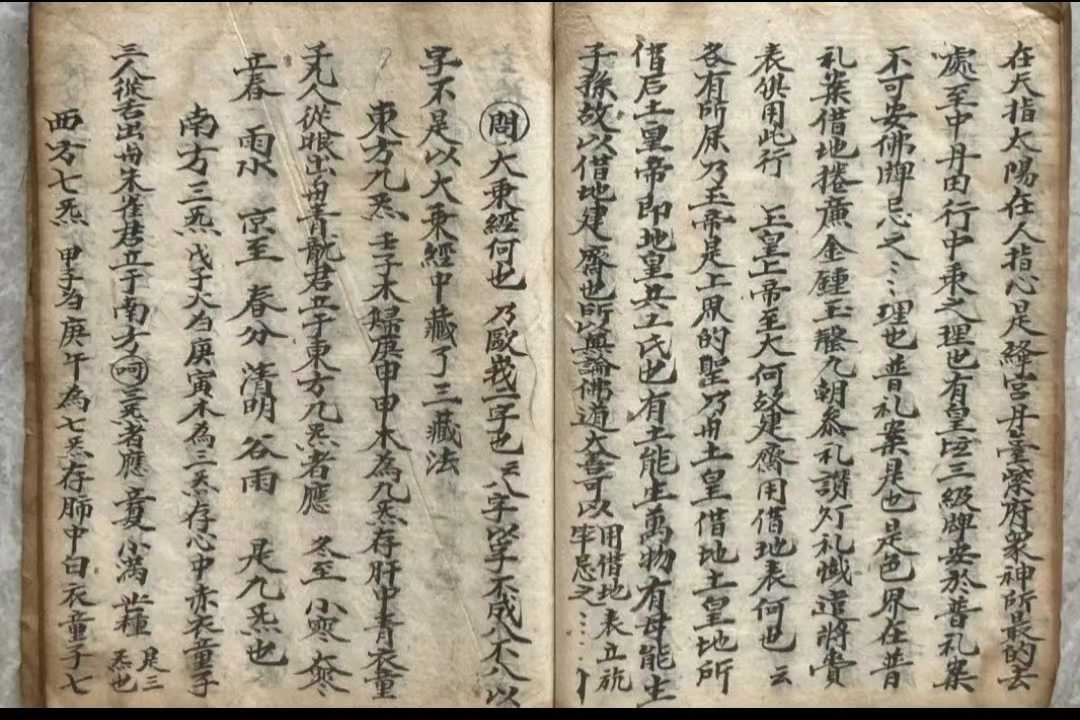 在天指太陽在人指心是絳宮丹臺紫府衆神所最的去
處至中丹田行中秉之理也有皇三級牌安於普礼案
不可安佛牌忌之⋯⋯理也普礼案是也是色界在普
礼案借地捲簾金鍾玉磬九朝叅礼讃礼懺遣將賫
表供用此行 玉皇上帝至大何建齋用借地表何也 云
各有所属乃玉帝是上界的聖乃毌土皇借地土皇地所
借后土皇帝即地皇共工氏也有土能生萬物有母能生
子孫故以借地建齋也所以與論佛道大可以用借地表立
忌之
問大乗經何也 乃歐我一字也 云八字以字不成八不八以
字不是以大乗經中藏了三藏法
東方九炁 壬子木婦庚申甲木為九炁存肝中青衣童
子九人從眼出毌青龍君立于東方九炁者應 冬至 小寒 大寒
立春 雨水 京至 春分 清明 谷雨 是九炁也
南方三炁 戊子火為庚寅木為三炁存心中赤衣童子
三人從舌出毌朱雀君立于南方呵三炁者應 立夏 小滿 芒種 是三炁也
西方七炁 甲子為庚午為七炁存肺中白衣童子七